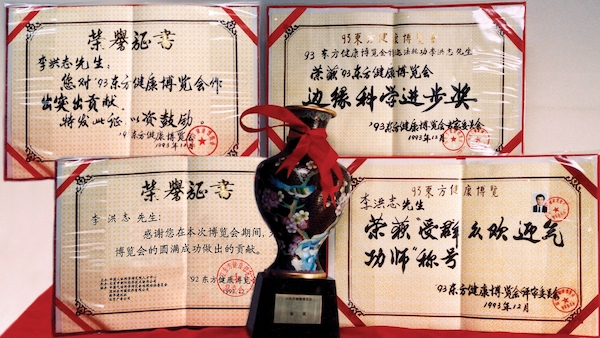 荣誉证书
李洪志先生:
您对'93东方健康博览会作
出突出贡献.
特发此证以资鼓励。
'93东方健康博览会
1993年12月
93东方健康博览会
荣获'93东方健康博览会
边缘科学进步奖
'93东方健康博览会评审委员会
1993年12月
荣誉证书
李洪志先生:
感谢您在本次博览会期间,
博览会的圆满成功做出的贡献.
'92东方健康博览会
93东方健康博览
李洪志先生
荣获"受群众欢迎气
功师"称号
'93东方健康博览会评审委员会
1993年12月